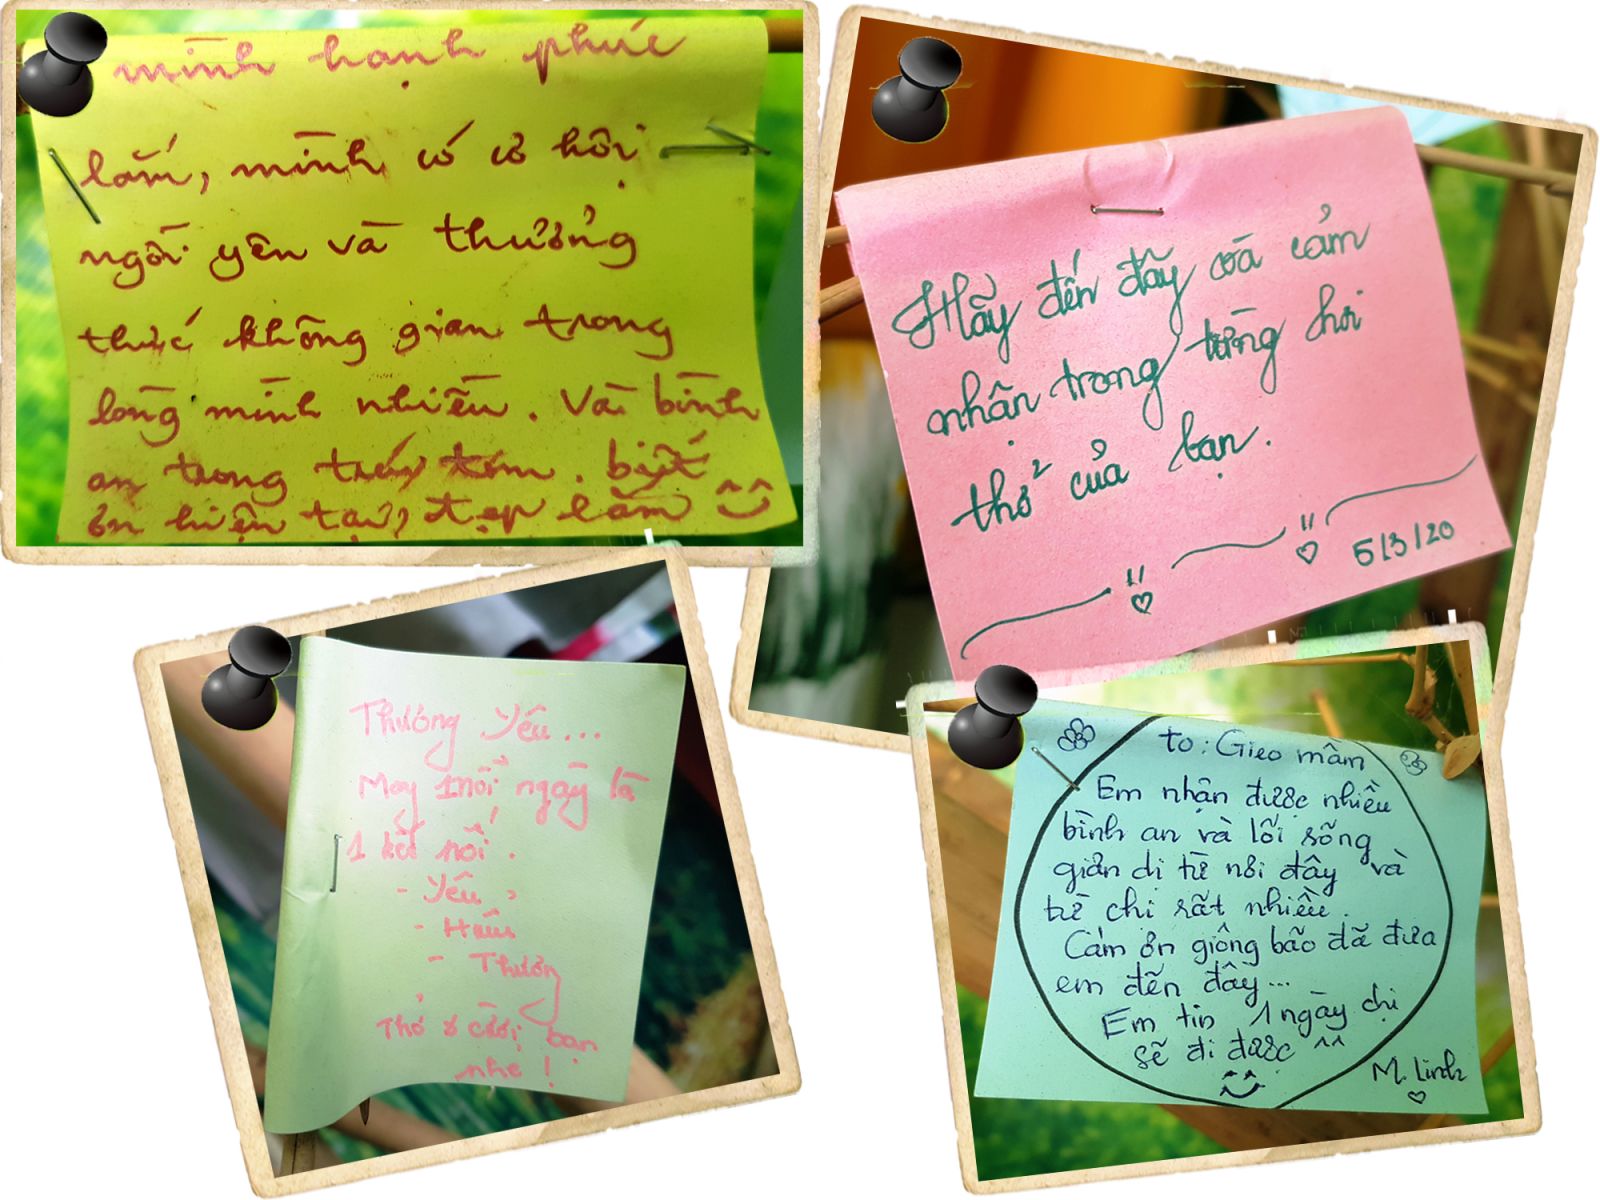 mình hạnh phúc
lắm, mình có cơ hội
ngồi yên và thưởng
thức không gian trong
lòng mình nhiều. Và bình
an trong trái tim. biết
ơn hiện tại, đẹp lắm
Hãy đến đây và cảm
nhận trong từng hơi
thở của bạn.
5/3/20
Thương yếu...
May mỗi ngày là
1 kết nối.
- Yêu,
- Hiểu
- Thương
Thở & cười, bạn
nhé!
to: Gieo mầm
Em nhận được nhiều
bình an và lối sống
giản dị từ nơi đây và
từ chị rất nhiều.
Cảm ơn giông bão đã đưa
em đến đây...
Em tin 1 ngày chị
sẽ đi được ^^
M. Linh